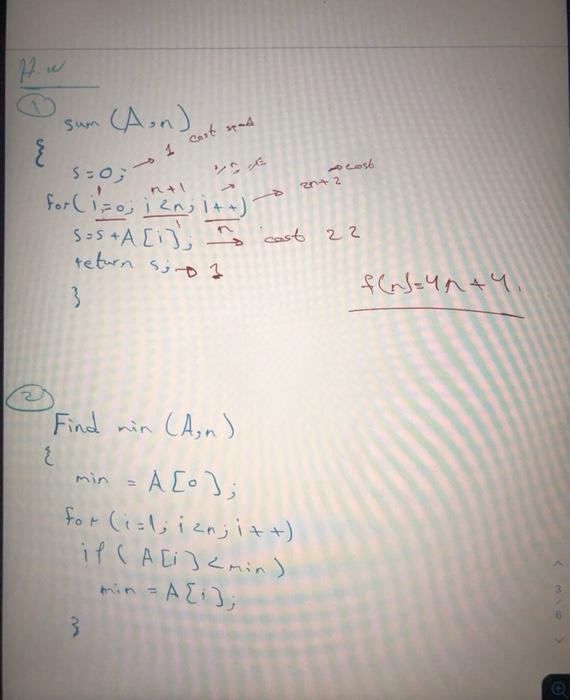 H.w
①
sum (A,n)
{
s=0; → 1 cost
1 n+1
for(i=0; i<n; i++) → 2n+2 → cost
n
s=s+A[i]; → cost 22
return s; → 1
}
f(n)=4n+4.
②
Find min (A,n)
{
min = A[0];
for (i=1; i<n; i++)
if (A[i]<min)
min = A[i];
}
3
6